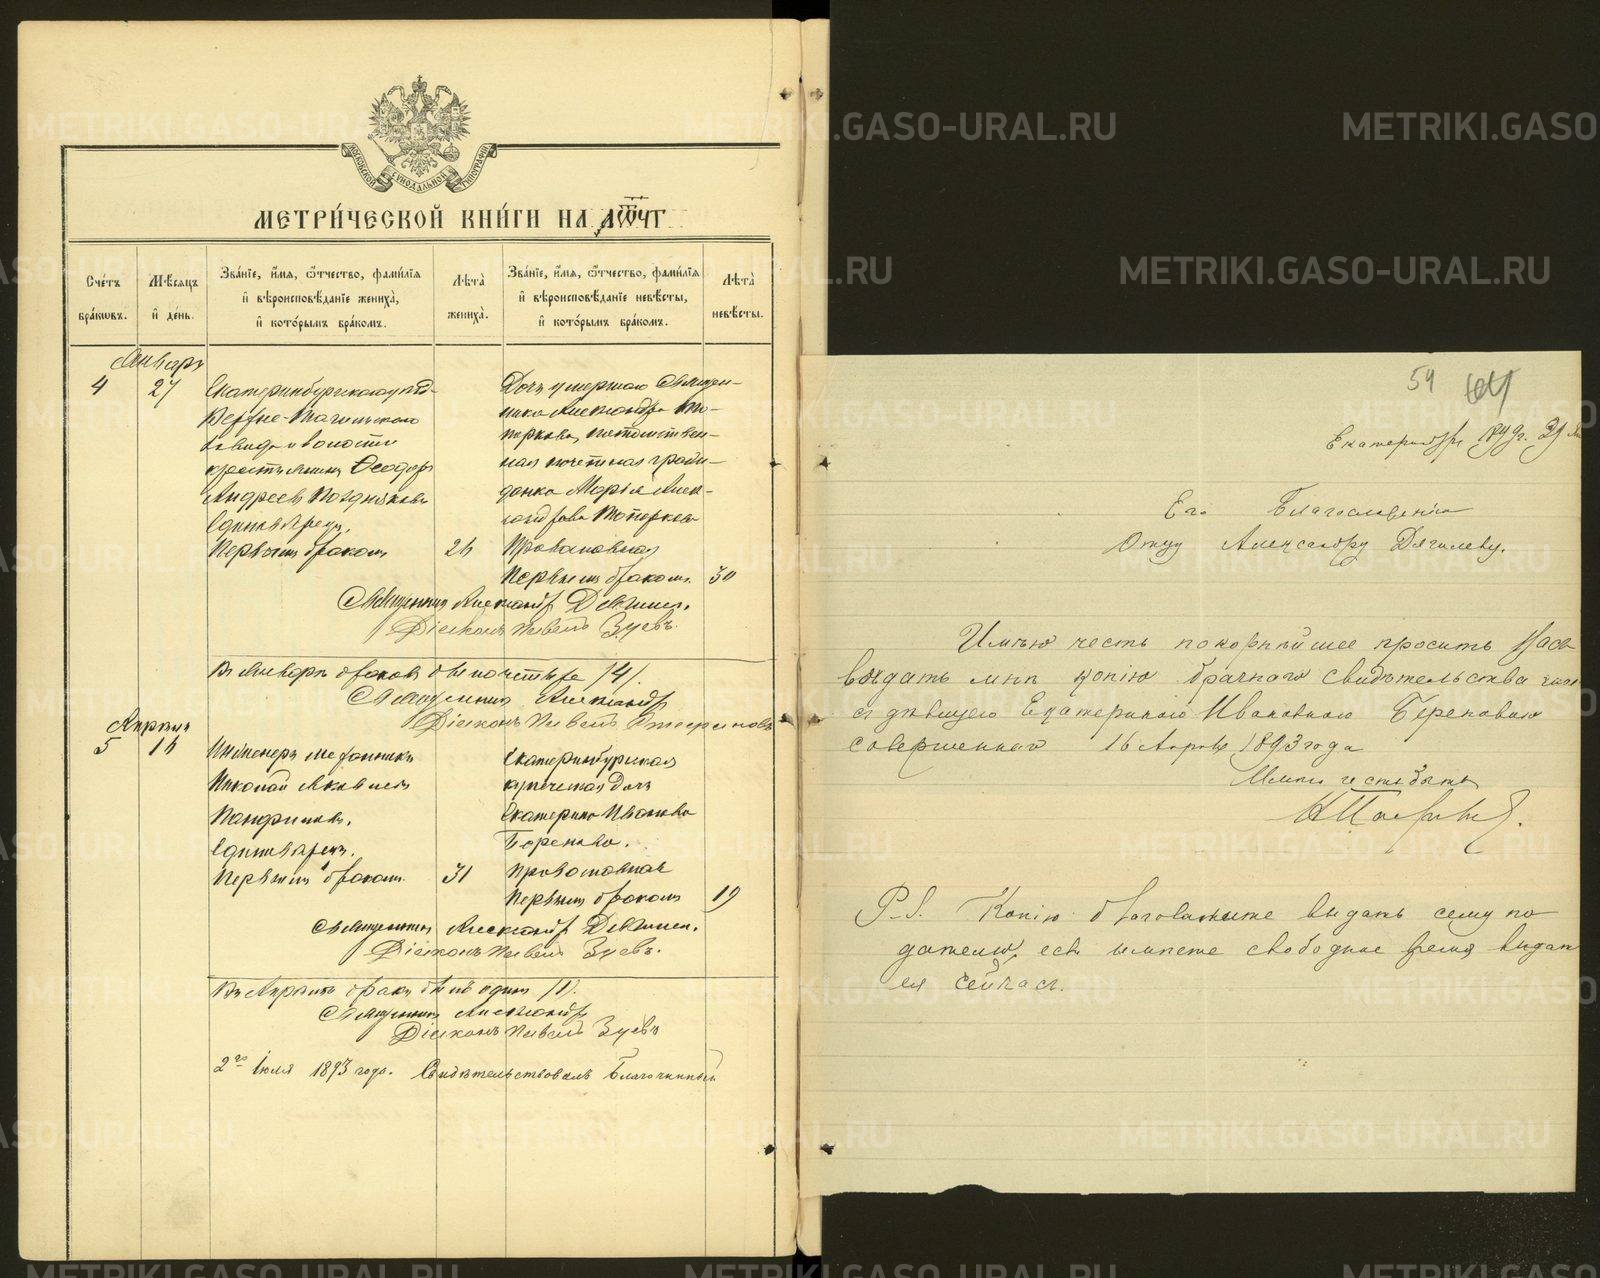 МОСКОВСКОЙ СѴНОДАЛЬНОЙ ТИПОГРАФІИ
МЕТРИ́ЧЕСКОЙ КНИ́ГИ НА
Сче́тъ бра́кωвъ.
Мѣ́сяцъ и҆ де́нь.
Зва́нїе, и҆́мѧ, ѻ҆́тчество, фами́лїѧ и҆ вѣроисповѣ́данїе жениха̀, и҆ кото́рымъ бра́комъ.
Лѣта̀ жениха̀.
Зва́нїе, и҆́мѧ, ѻ҆́тчество, фами́лїѧ и҆ вѣроисповѣ́данїе невѣ́сты, и҆ кото́рымъ бра́комъ.
Лѣта̀ невѣ́сты.
Январь
4 27
Екатеринбургскаго уѣз-
Верхне-Тагильскаго
завода и волости
крестьянинъ Ѳеодоръ
Андреевъ Поздняковъ
Единовѣрецъ.
Первымъ бракомъ
26
Дочь умершаго Священ-
ника Александра То-
поркова, потомствен-
ная почетная граж-
данка Марія Алек-
сандрова Топоркова
Православная
Первымъ бракомъ. 30
Священникъ Александръ
Діаконъ Павелъ Зуевъ.
Въ Январѣ браковъ было четыре /4/.
Священникъ Александръ
Діаконъ Павелъ
Апрѣль
5 16
Инженеръ механикъ
Николай Яковлевъ
Панфиловъ.
Единовѣрецъ.
Первымъ бракомъ.
31
Екатеринбургская
купеческая дочь
Екатерина Иванова
Беренова.
Православная
Первымъ бракомъ 19
Священникъ Александръ
Діаконъ Павелъ Зуевъ.
Въ Апрѣлѣ бракъ былъ одинъ /1/.
Священникъ Александръ
Діаконъ Павелъ Зуевъ
2го Іюля 1893 года. Свидѣтельствовалъ Благочинный
54 64
Екатеринбургъ
Его Благословенію
Отцу Александру Дягилеву.
Имѣю честь покорнѣйше просить Васъ
выдать мнѣ копію брачнаго свидѣтельства
съ дѣвицею Екатериною Ивановною Береновою
совершеннаго 16 Апрѣля 1893 года
Имѣю честь быть
P.S. Копію благоволите выдать сему по
дателю, если имѣете свободное время
ея сейчасъ.
METRIKI.GASO-URAL.RU